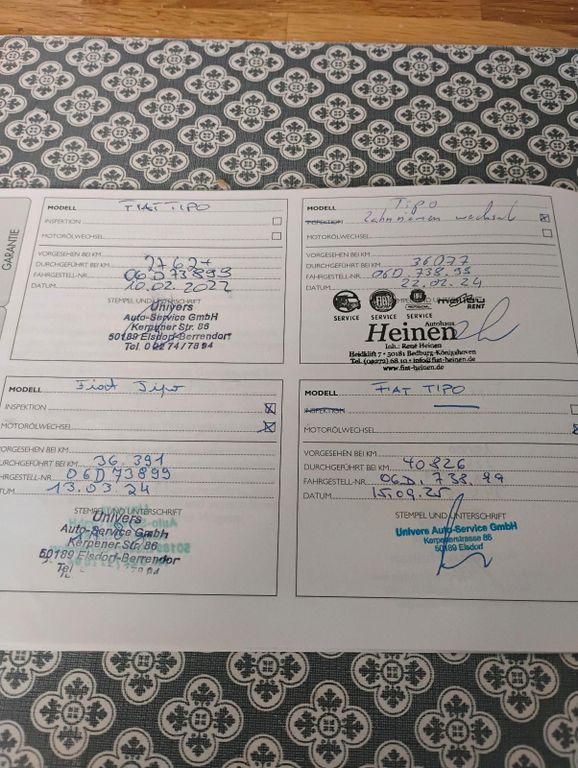 GARANTIE
MODELL FIAT TIPO
INSPEKTION
MOTORÖLWECHSEL
VORGESEHEN BEI KM
DURCHGEFÜHRT BEI KM 27627
FAHRGESTELL-NR. 06D73899
DATUM 10.02.2022
STEMPEL UND UNTERSCHRIFT
Univers
Auto-Service GmbH
Kerpener Str. 86
50189 Elsdorf-Berrendorf
Tel. 0 22 74 / 78 94
MODELL Tipo
INSPEKTION Zahnriemen wechsel
MOTORÖLWECHSEL
VORGESEHEN BEI KM
DURCHGEFÜHRT BEI KM 36077
FAHRGESTELL-NR. 06D.738.99
DATUM 22.02.24
STEMPEL UND UNTERSCHRIFT
SERVICE SERVICE SERVICE RENT
Autohaus
Heinen
Inh.: René Heinen
Heidklift 7 • 50181 Bedburg-Königshoven
Tel. (02272) 68 10 • info@fiat-heinen.de
www.fiat-heinen.de
MODELL Fiat Tipo
INSPEKTION
MOTORÖLWECHSEL
VORGESEHEN BEI KM
DURCHGEFÜHRT BEI KM 36.391
FAHRGESTELL-NR. 06D73899
DATUM 13.03.24
STEMPEL UND UNTERSCHRIFT
Univers
Auto-Service GmbH
Kerpener Str. 86
50189 Elsdorf-Berrendorf
Tel
MODELL FIAT TIPO
INSPEKTION
MOTORÖLWECHSEL
VORGESEHEN BEI KM
DURCHGEFÜHRT BEI KM 40826
FAHRGESTELL-NR. 06D.738.99
DATUM 15.09.25
STEMPEL UND UNTERSCHRIFT
Univers Auto-Service GmbH
Kerpenerstrasse 86
50189 Elsdorf